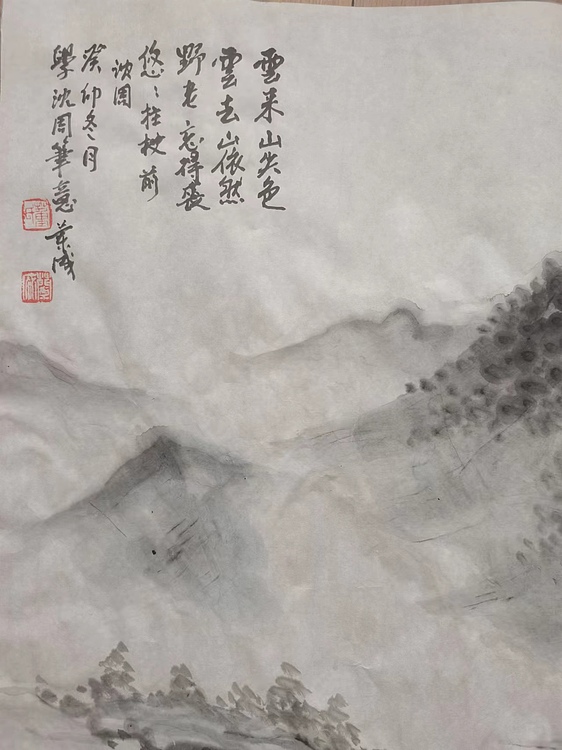 雲来山失色
雲去山依然
野老忘得喪
悠〻拄杖前
沈周
癸卯冬月
學沈周筆意